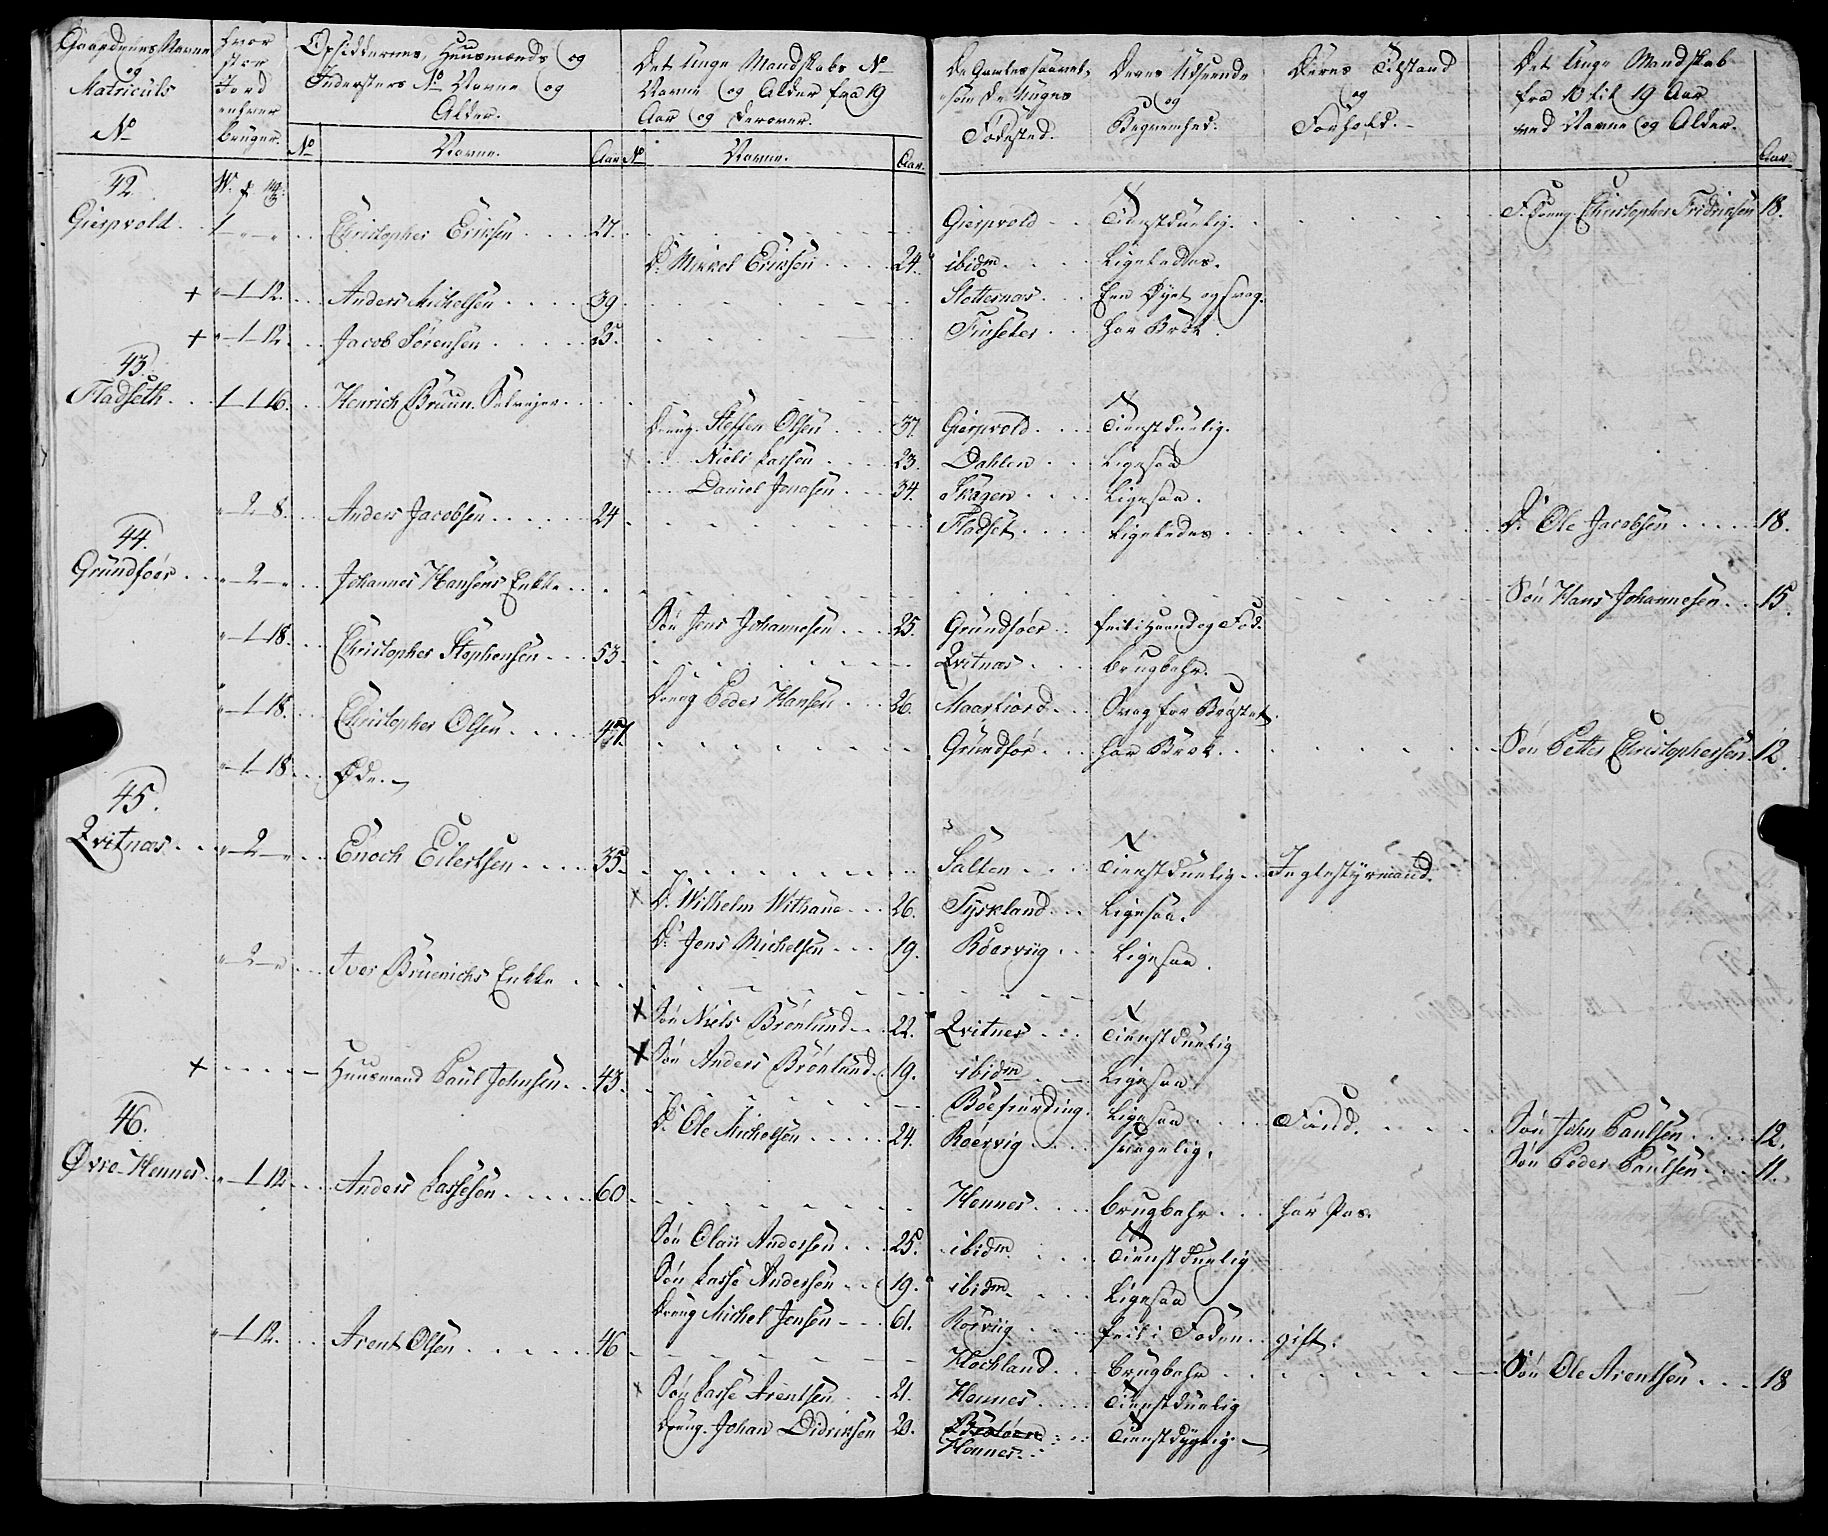 Gaardenes Navne og Matriculs No
Hvor stor Jord enhver bruger.
Opsiddernes, Huusmænds og Indersters No Navne og Alder.
Det Unge Mandskabs No Navne og Alder fra 19 Aar og derover.
De Gamles saavelsom de Unges Fødested.
Deres Udseende og Begvemhed.
Deres Tilstand og Forhold.
Det Unge Mandskab fra 10 til 19 Aar ved Navne og Alder.
No Navne. Aar No Navne. Aar. Aar.
42. W. 
Gierpvold . . 1 „ „ . . Christopher Eriksen . . . 27. Gierpvold . . Tienstduelig. . . . F. Dreng Christopher Fridrixsen 18.
D. Mikkel Eriksen . . . 24. ibidm . . . Ligeledes.
+ „ 1 12. . . Anders Michelsen . . . 39. Slotternæs . . Een Øyet og svag.
+ „ 1 12. . . Jacob Sørensen . . . 25. Finseter . . har Brok.
43.
Fladseth . . 1 1 16. . . Henrich Bruun. Selvejer . . .
Dreng. Steffen Olsen . . . 37. Gierpvold . . . Tienstduelig.
x . . Niels Larsen . . . 23. Dahlen . . Ligesaa
. . Daniel Jonasen . . . 34. Skagen . . . Ligesaa.
„ 2 8. . . Anders Jacobsen . . . 24 Fladset . . . Ligeledes . . . D. Ole Jacobsen . . . 18.
44.
Grundføer . . „ 2 „ . . Johannes Hansens Enkke . . . Søn Hans Johannesen . . 15.
Søn Jens Johannesen . . . 25. Grundføer . . feil i Haand og Fod.
„ 1 18. . . Christopher Stephensen . . . 53. Qvitnæs . . . brugbahr.
Dreng Peder Hansen . . . 26. Maarfiord . . . Svag for Brøstet.
„ 1 18. . . Christopher Olsen . . . 47. Grundfør . . har Brok . . . Søn Petter Christophersen 12.
„ 1 18. . . Øde.
45.
Qvitnæs . . „ 2 „ . . Enoch Eilertsen . . . 35. Salten . . . Tienstduelig . . Jegtestyrmand.
x D. Wilhelm Withane . . 26. Tyskland . . Ligesaa.
D. Jens Michelsen . . 19. Röerviig . . Ligesaa.
„ 2 „ . . Iver Bruenichs Enkke . . .
x Søn Niels Brønlund . . 22. Qvitnes . . . Tienstduelig
x Søn Anders Brønlund . 19. ibidm . . Ligesaa
+ . . . Huusmand Paul Johnsen . . 43. Böefierding. Ligesaa . . . Find. . . . Søn John Paulsen . . . 12.
D. Ole Michelsen . . . 24. Röervig . . . svagelig. Søn Peder Paulsen . . . 11.
46.
Øvre-Hennes . . „ 1 12 . . Anders Lassesen . . . 60. Hennes . . . brugbahr . . har Pas.
Søn Olaii Andersen . . . 25. ibidm . . . Tienstduelig
Søn Lasse Andersen . . 19. ibidm . . . Ligesaa
Dreng Michel Jensen . . 61. Röerviig . . . feil i Foden . . gift.
„ 1 12. . . Arent Olsen . . . 46 Hochland . . . brugbahr . . . Søn Ole Arentsen . . . 18
x Søn Lasse Arentsen . . 21. Hennes . . . Tienstduelig
Dreng. Johan Didriksen 20. Hennes . . Tienstdygtig.